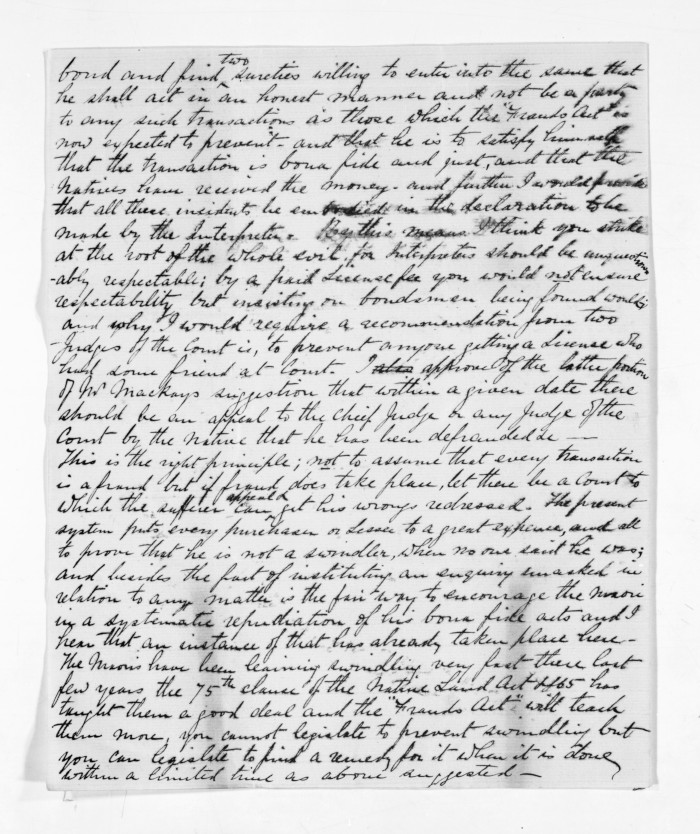 bond and find two sureties willing to enter into the same that
he shall act in an honest manner and not be a party
to any such transactions as those which the "Frauds Act" is
now expected to prevent - and that he is to satisfy himself
that the transaction is bona fide and just, and that the
Natives have received the money - and further I would provide
that all these insidents be embodied in the declaration to be
made by the Interpreter. this means I think you strike
at the root of the whole evil, for Interpreters should be unquestion
-ably respectable; by a paid License fee you would not ensure
respectability but insisting on bondsmen being found would;
and why I would require a recommendation from two
Judges of the Court is, to prevent anyone getting a License who
had some friend at Court. I also approve of the latter portion
of Mr Mackays suggestion that within a given date there
should be an appeal to the Chief Judge or any Judge of the
Court by the Native that he has been defrauded &c —
This is the right principle; not to assume that every transaction
is a fraud but if fraud does take place, let there be a Court to
which the sufferer can appeal & get his wrongs redressed. The present
system puts every purchaser or Lessee to a great expence, and all
to prove that he is not a swindler, when no one said he was;
and besides the fact of instituting an enquiry unasked in
relation to any matter is the fair way to encourage the maori
in a systematic repudiation of his bona fide acts and I
hear that an instance of that has already taken place here -
The Maoris have been learning swindling very fast these last
few years the 75th clause of the Native Land Act 1865 has
taught them a good deal and the "Frauds Act" will teach
them more, you cannot legislate to prevent swindling but
you can legislate to find a remedy for it when it is done
within a limited time as above suggested —